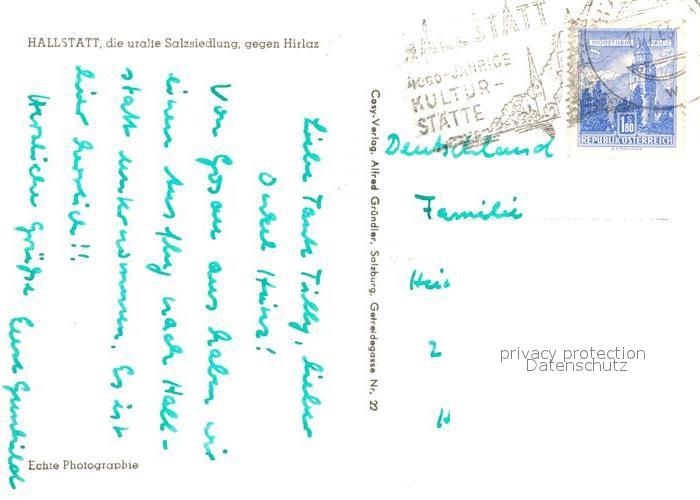 HALLSTATT, die uralte Salzsiedlung, gegen Hirlaz
Liebe Tante Tilly, lieber
Onkel Heinz!
Von Gosau aus haben wir
einen Ausflug nach Hall-
statt unternommen. Es ist
hier herrlich!!
Herzliche Grüße Eure Gunhild
Echte Photographie
Cosy-Verlag, Alfred Gründler, Salzburg, Getreidegasse Nr. 22
HALLSTATT
4000-JÄHRIGE
KULTUR-
STÄTTE
1.80
REPUBLIK ÖSTERREICH
Deutschland
Familie
Hei
2
H
privacy protection
Datenschutz